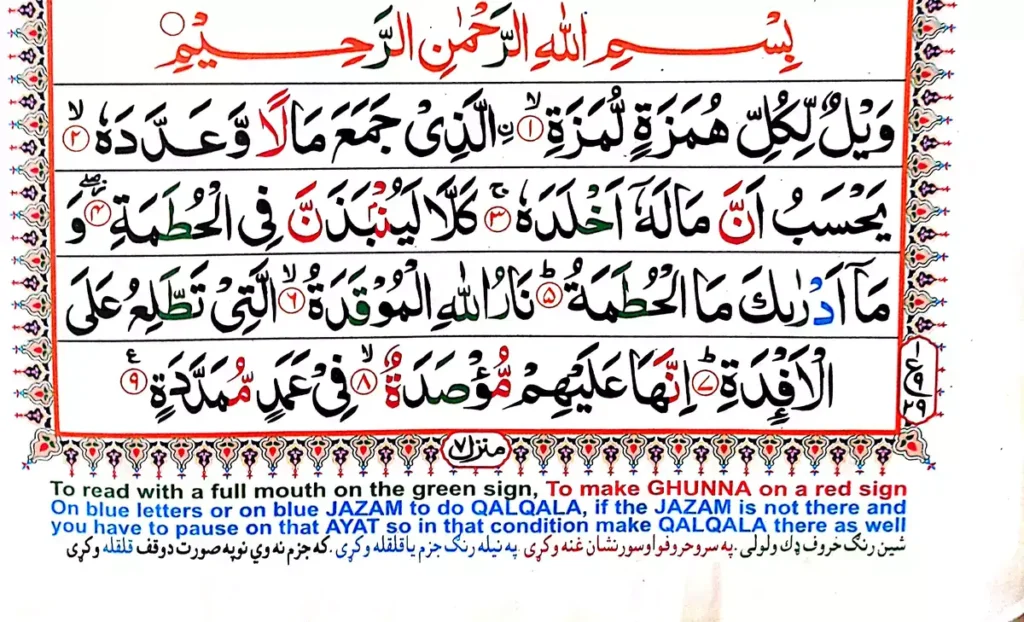 بِسْمِ اللّٰهِ الرَّحْمٰنِ الرَّحِيْمِ
وَيْلٌ لِّكُلِّ هُمَزَةٍ لُّمَزَةِ ۙ﴿۱﴾ ۨالَّذِىْ جَمَعَ مَالًا وَّعَدَّدَهٗ ۙ﴿۲﴾
يَحْسَبُ اَنَّ مَالَهٗۤ اَخْلَدَهٗ ۚ﴿۳﴾ كَلَّا لَيُنْۢبَذَنَّ فِى الْحُطَمَةِ ۖ﴿۴﴾ وَ
مَاۤ اَدْرٰىكَ مَا الْحُطَمَةُ ؕ﴿۵﴾ نَارُ اللّٰهِ الْمُوْقَدَةُ ۙ﴿۶﴾ الَّتِىْ تَطَّلِعُ عَلَى
الْاَفْئِدَةِ ؕ﴿۷﴾ اِنَّهَا عَلَيْهِمْ مُّؤْصَدَةٌ ۙ﴿۸﴾ فِىْ عَمَدٍ مُّمَدَّدَةٍ ﴿۹﴾ ع
۱
ع
۹
۲۹
منزل ۷
To read with a full mouth on the green sign, To make GHUNNA on a red sign
On blue letters or on blue JAZAM to do QALQALA, if the JAZAM is not there and
you have to pause on that AYAT so in that condition make QALQALA there as well
شین رنگ حروف ډک ولولی. په سرو حروفو او سور نشان غنه وکړی. په نیله رنگ جزم یا قلقله وکړی. که جزم نه وي نو په صورت د وقف قلقله وکړی